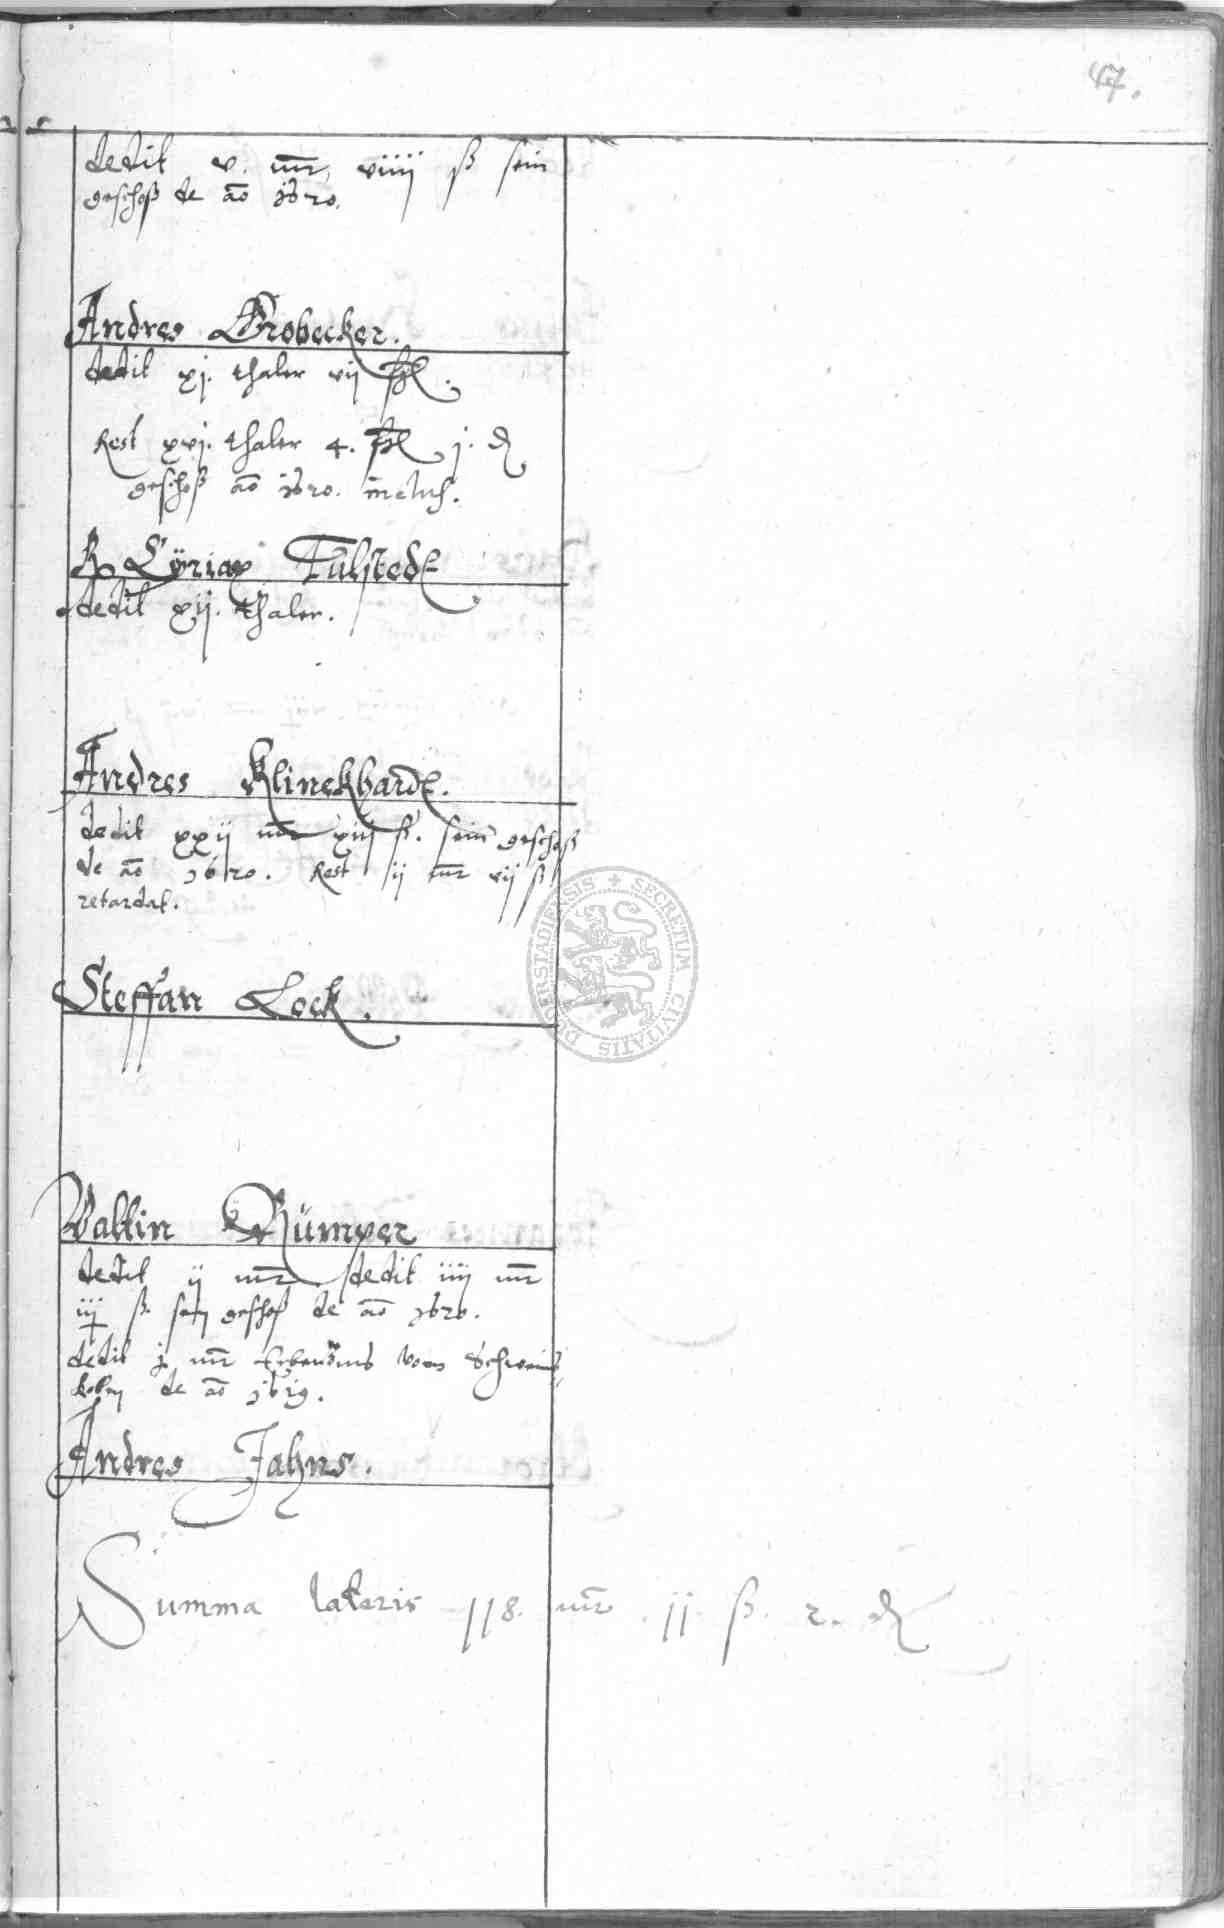 47.
dedit v. mr viiii ß sein
geschoß de ao 1620.
Andres Grobecker.
dedit xj. thaler vij ßl.
Rest xvj. thaler 4. ßl j. d
geschoß ao 1620. inclus.
Cÿriax Tulstede
dedit xij. thaler.
Andres Klinckhardt.
dedit xxij mr xiij ß. sein geschoß
de ao 1620. Rest ij mr vij ß
retardat.
Steffan Lock.
Valtin Rümper
dedit ij mr dedit iiij mr
iij ß. sein geschoß de ao 1620.
dedit j mr Erbenzins vom Schweins
koben de ao 1619.
Andres Jahns.
Summa lateris 118. mr 11 ß. 2. d
SECRETUM CIVITATIS DUDERSTADIENSIS